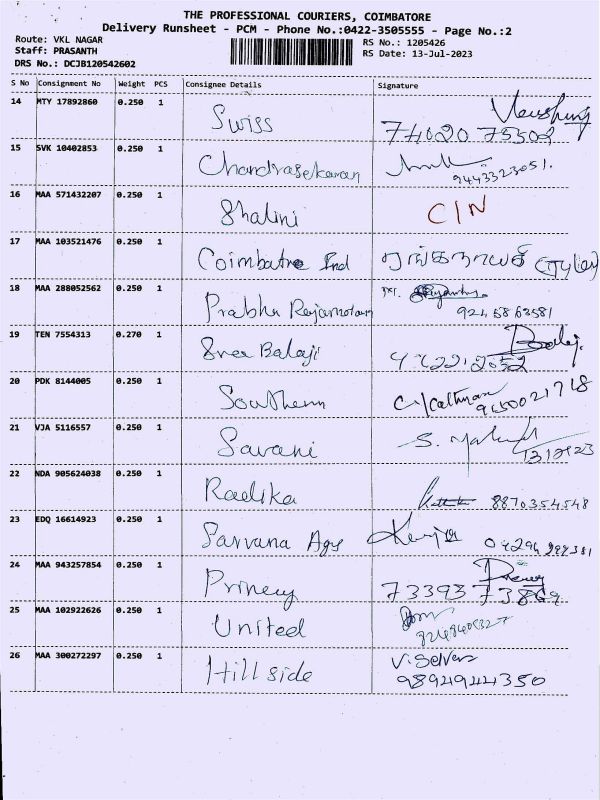 THE PROFESSIONAL COURIERS, COIMBATORE
Delivery Runsheet - PCM - Phone No.:0422-3505555 - Page No.:2
Route: VKL NAGAR
Staff: PRASANTH
DRS No.: DCJB120542602
RS No.: 1205426
RS Date: 13-Jul-2023
S No Consignment No Weight PCS Consignee Details Signature
14 MTY 17892860 0.250 1 Swiss
74020 75502
15 SVK 10402853 0.250 1 Chandrasekaran
9443323051.
16 MAA 571432207 0.250 1 Shalini C/N
17 MAA 103521476 0.250 1 Coimbatore Ind
18 MAA 288052562 0.250 1 Prabhu Rajamotam
9245863581
19 TEN 7554313 0.270 1 Sree Balaji Balaji
20 PDK 8144005 0.250 1 Southern
9650021718
21 VJA 5116557 0.250 1 Savani S.
13/7/23
22 NDA 905624038 0.250 1 Radika 8870354548
23 EDQ 16614923 0.250 1 Sarvana Ags
24 MAA 943257854 0.250 1 Primery
73393 73869
25 MAA 102922626 0.250 1 United
26 MAA 300272297 0.250 1 Hillside V. Selvan
9894944350